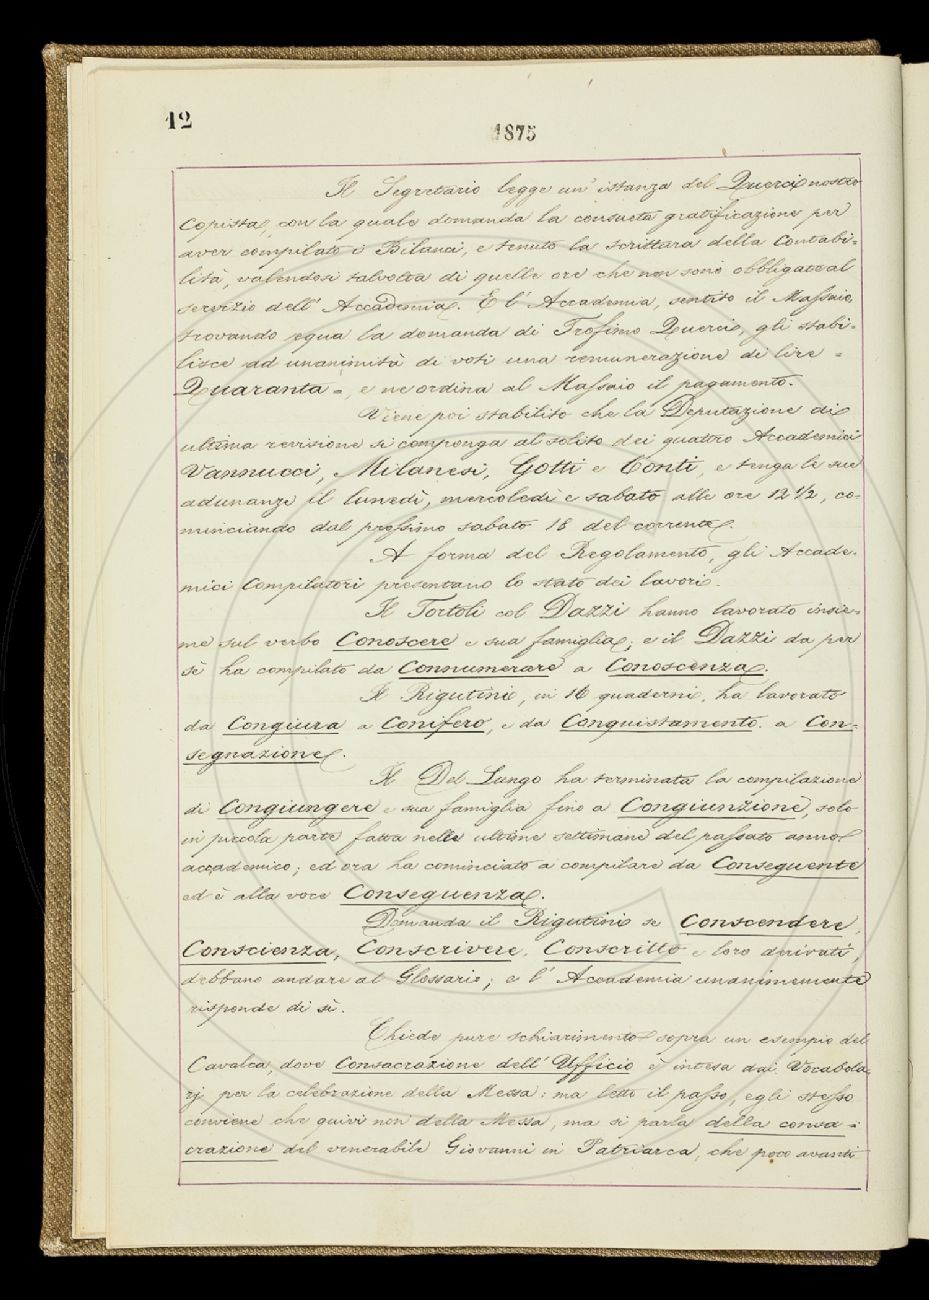 12
1875
Il Segretario legge un' istanza del Querci nostro
Copista, con la quale domanda la consueta gratificazione per
aver compilato i Bilanci, e tenuto la scrittura della Contabi=
lità, valendosi talvolta di quelle ore che non sono obbligate al
servizio dell' Accademia. E l' Accademia, sentito il Massaio,
trovando equa la domanda di Trofimo Querci, gli stabi=
lisce ad unanimità di voti una remunerazione di lire =
Quaranta =, e ne ordina al Massaio il pagamento.
Viene poi stabilito che la Deputazione di
ultima revisione si componga al solito dei quattro Accademici
Vannucci, Milanesi, Gotti e Conti, e tenga le sue
adunanze il lunedì, mercoledì e sabato, alle ore 12 1/2, co=
minciando dal prossimo sabato 18 del corrente.
A forma del Regolamento, gli Accade=
mici Compilatori presentano lo stato dei lavori.
Il Tortoli col Dazzi hanno lavorato insie=
me sul verbo Conoscere e sua famiglia; e il Dazzi da per
sè ha compilato da Connumerare a Conoscenza.
Il Rigutini, in 16 quaderni, ha lavorato
da Congiura a Conifero, e da Conquistamento. a Con=
segnazione.
Il Del Lungo ha terminata la compilazione
di Congiungere e sua famiglia fino a Congiunzione, solo
in piccola parte fatta nelle ultime settimane del passato anno
accademico; ed ora ha cominciato a compilare da Conseguente
ed è alla voce Conseguenza.
Domanda il Rigutini se Conscendere,
Conscienza, Conscrivere, Conscritto e loro derivati,
debbano andare al Glossario; e l' Accademia unanimemente
risponde di sì.
Chiede pure schiarimento sopra un esempio del
Cavalca, dove Consacrazione dell' Ufficio è intesa dai Vocabola=
rj per la celebrazione della Messa: ma letto il passo, egli stesso
conviene che quivi non della Messa, ma si parla della consa=
crazione del venerabile Giovanni in Patriarca, che poco avanti